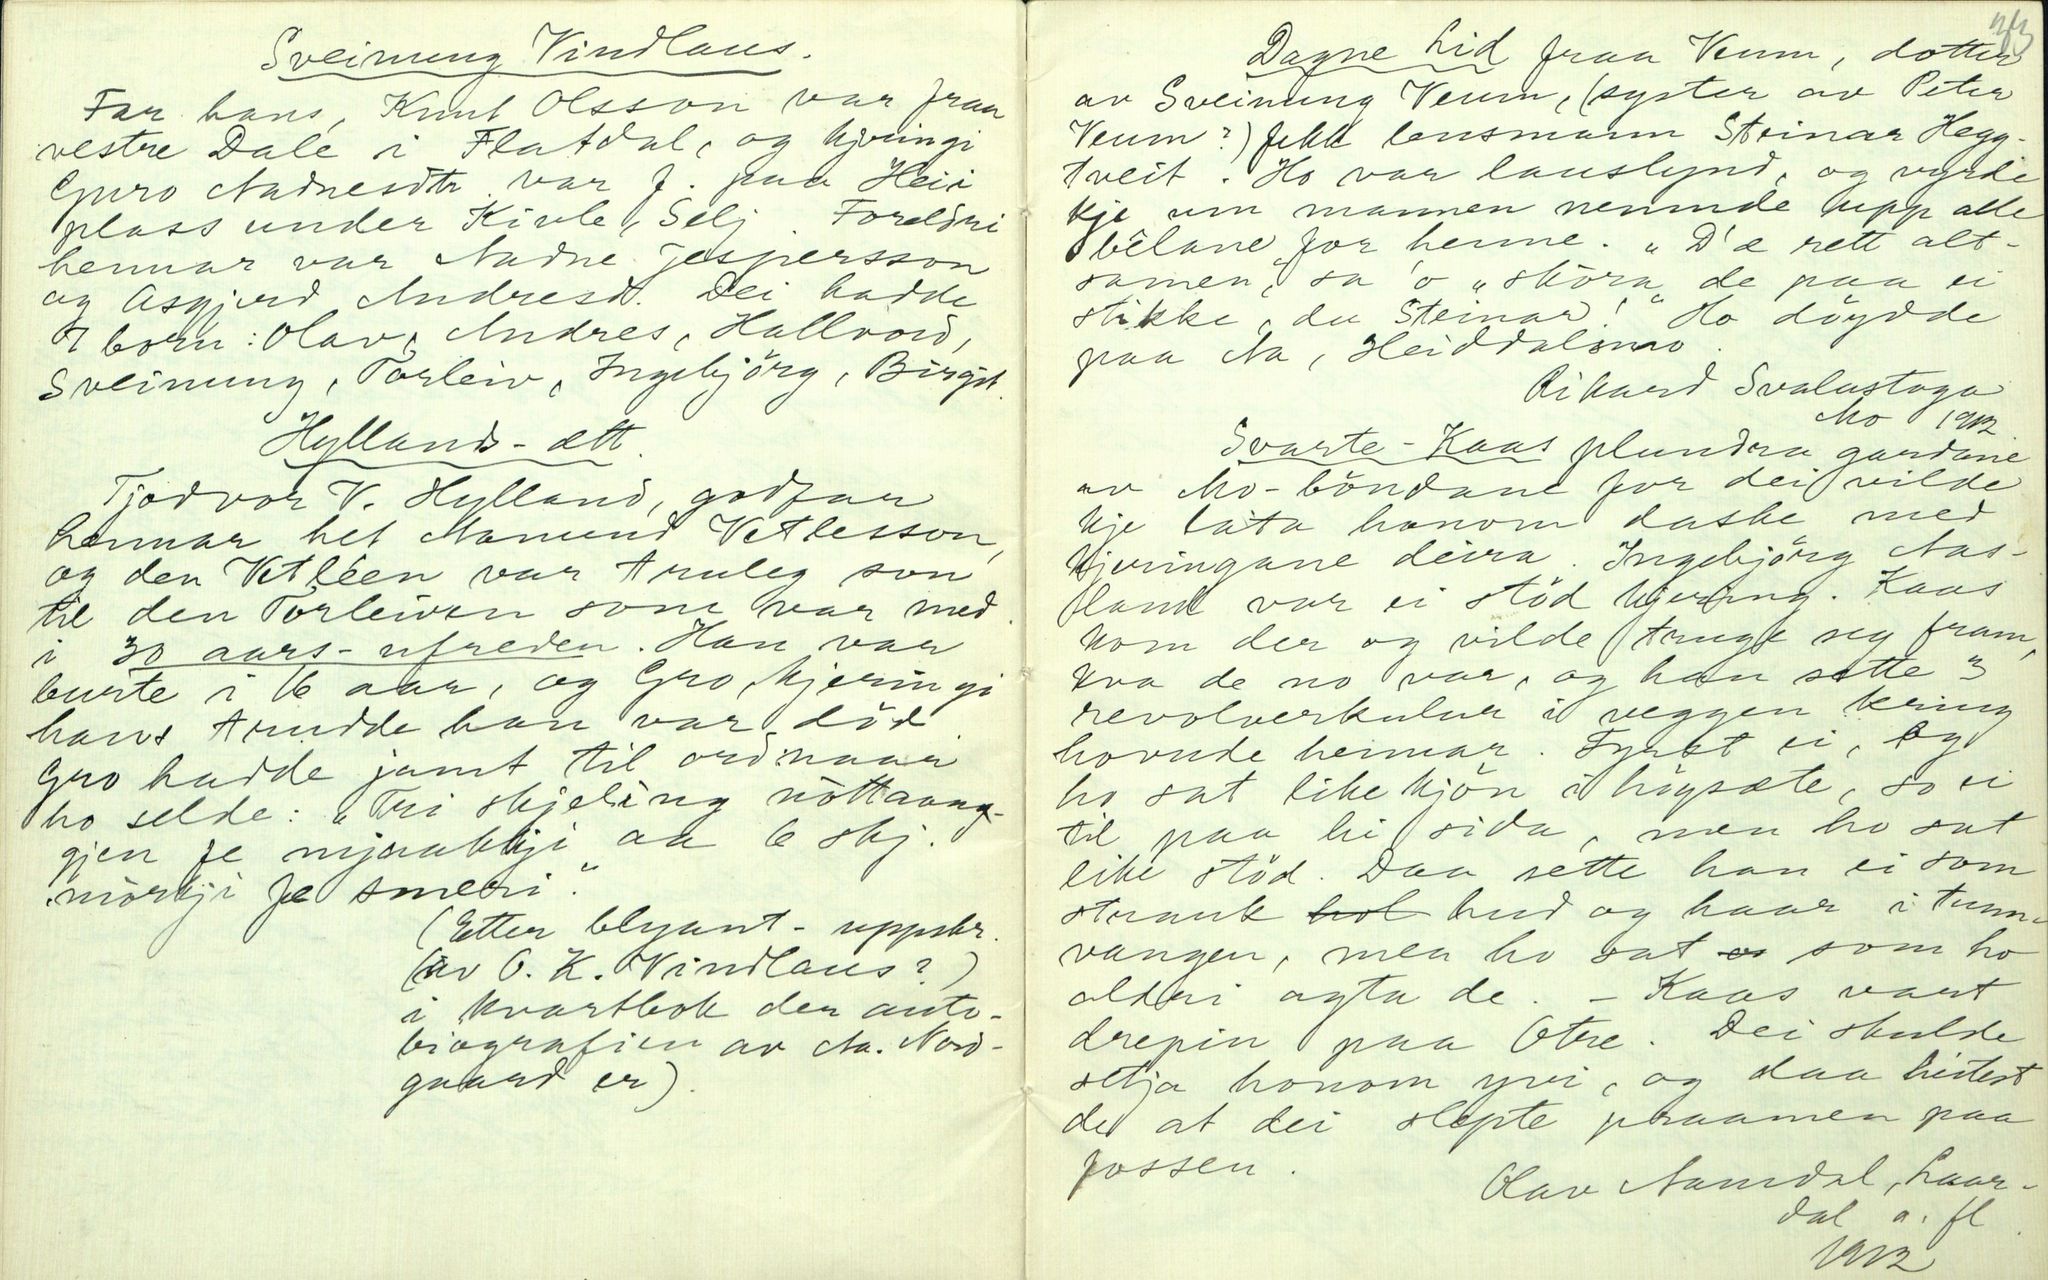 Sveinung Vindlaus.
Far hans, Knut Olsson var fraa
vestre Dale i Flatdal, og kjeringi
Guro Aadnesdtr. var f. paa Heii
plass under Kivle, Selj. Foreldri
hennar var Aadne Jespersson
og Asgjerd Andresd. Dei hadde
7 born: Olav, Andres, Hallvord,
Sveinung, Torleiv, Ingebjörg, Birgit.
Hyllands-ætt.
Tjodvor V. Hylland, godfar
hennar het Aamund Vetlesson,
og den Vetleen var truleg son
til den Torleiven som var med
i 30 aars-ufreden. Han var
burte i 6 aar, og Gro, kjeringi
hans trudde han var död.
Gro hadde jamt til ord naar
ho selde: "Tri skjeling nöttaang-
gjen fe mjaakkji aa 6 skj.
mörkji fe smeri".
(Etter blyant-uppskr.
(av O. K. Vindlaus?)
i kvartbok der auto-
biografien av Aa. Nord-
gaard er).
Dagne Lid fraa Veum, dotter
av Sveinung Veum, (syster av Peter
Veum?) fekk lensmann Steinar Hegg-
tveit. Ho var lauslynd, og vyrde
kje um mannen nemnde upp alle
bêlane for henne. "D'æ rett alt-
samen," sa 'o "skôra de paa ei
stikke, du Steinar!" Ho döydde
paa Aa, Heiddalsmo.
Rikard Svalastoga
Mo 1912
Svarte-Kaas plundra gardane
av Mo-böndane for dei vilde
kje lata honom daske med
kjeringane deira. Ingebjörg Aas-
land var ei stöd kjering. Kaas
kom der og vilde truge seg fram,
kva de no var, og han sette 3
revolverkulur i veggen kring
hovude hennar. Fyrst ei, og
ho sat like kjön i högsæte, so ei
til paa hi sida, men ho sat
like stöd. Daa sette han ei som
strauk hol hud og haar i tunn-
vangen, men ho sat som ho
aldri agta de. – Kaas vart
drepin paa Otre. Dei skulde
setja honom yvi, og daa
de at dei slepte praamen paa
fossen.
Olav Aamdal, Laar-
dal o. fl.
1912